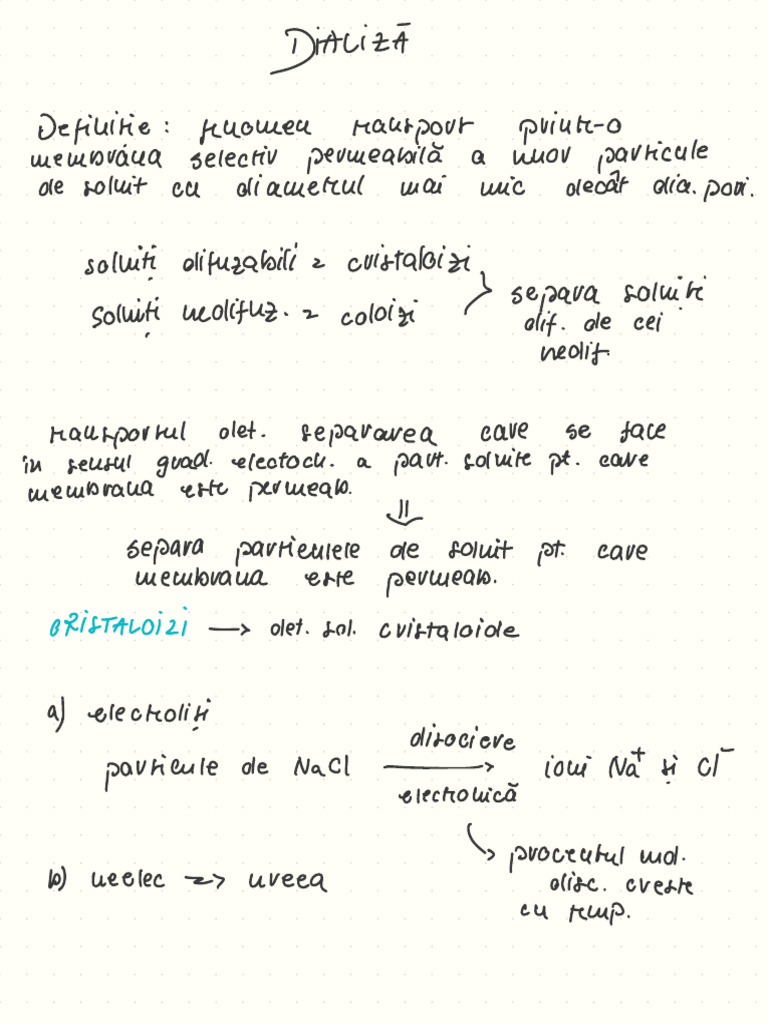 DIALIZĂ
Definitie: fenomen transport printr-o
membrana selectiv permeabilă a unor particule
de solvit cu diametrul mai mic decât dia. pori.
solviți difuzabili = cristaloizi
solviți nedifuz. = coloizi
separa solviți
dif. de cei
nedif.
transportul det. separarea care se face
in sensul grad. electoch. a part. solvite pt. care
membrana este permeab.
⇓
separa particulele de solvit pt. care
membrana este permeab.
CRISTALOIZI → det. sol. cristaloide
a) electroliți
disociere
particule de NaCl → ioni Na⁺ și Cl⁻
electronică
procentul mol.
disc. creste
cu temp.
b) neelec => ureea